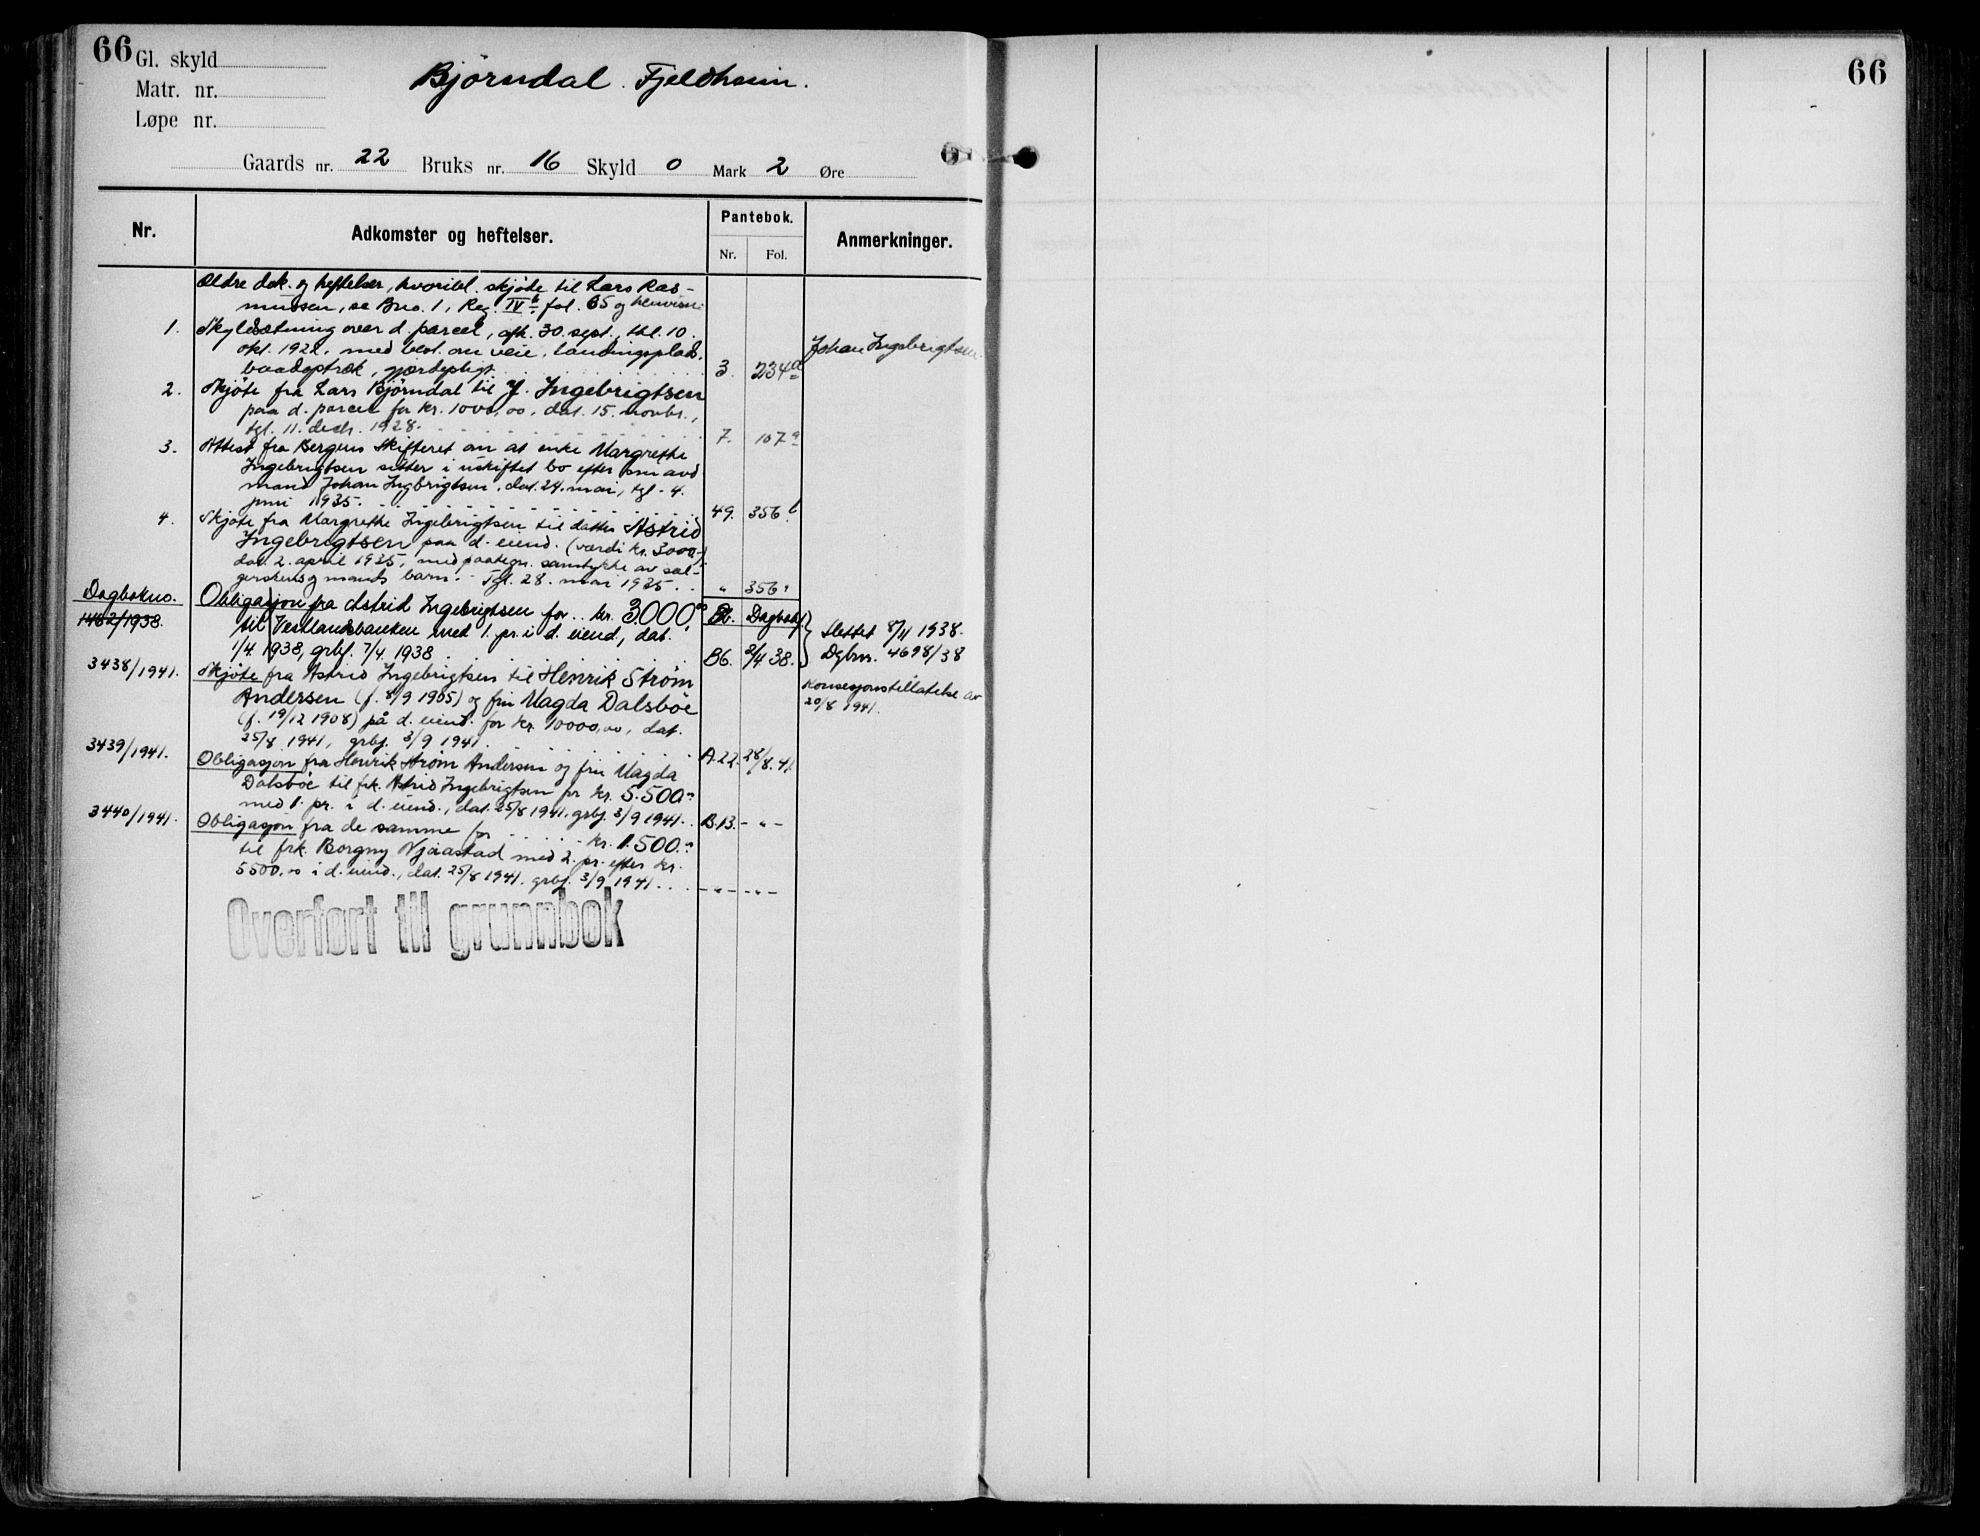 66
Gl. skyld
Matr. nr.
Løpe nr.
Bjørndal. Fjeldheim.
Gaards nr. 22 Bruks nr. 16 Skyld 0 Mark 2 Øre
Nr.
Adkomster og heftelser.
Pantebok.
Nr. Fol.
Anmerkninger.
Ældre dok. og heftelser, hvoribl. skjøte til Lars Ras-
mussen, se Bno. 1, Reg. IV b. fol. 65 og henvisn.
1. Skyldsætning over d. parcel, afh. 30. sept., thl. 10.
okt. 1922, med best. om veie, landingsplads,
baadoptræk, gjerdepligt. 3. 234a
Johan Ingebrigtsen.
2. Skjøte fra Lars Bjørndal til J. Ingebrigtsen
paa d. parcel for kr. 1000,00, dat. 15. novbr.,
tgl. 11. decbr. 1928. 7. 107a
3. Attest fra Bergens Skifteret om at enke Margrethe
Ingebrigtsen sitter i uskiftet bo efter sin avd.
mand Johan Ingbrigtsen, dat. 24. mai, tgl. 4.
juni 1935. 49. 356 b
4. Skjøte fra Margrethe Ingebrigtsen til datter Astrid
Ingebrigtsen paa d. eiend. (værdi kr. 3000,-)
dat. 2. april 1935, med paategn. samtykke av sæl-
gerskens og mands barn. Tgl. 28. mai 1935. " 356
Dagbokno.
1482/1938.
Obligasjon fra Astrid Ingebrigtsen for .. kr. 3000,00
til Vestlandsbanken med 1. pr. i d. eiend, dat.
1/4 1938, grbf. 7/4 1938.
Dagbokf.
B6. 2/4 38.
Slettet 8/11 1938.
Dgbnr. 4698/38
3438/1941. Skjøte fra Astrid Ingebrigtsen til Henrik Strøm
Andersen (f. 8/9 1905) og fru Magda Dalsbøe
(f. 19/12 1908) på d. eiend. for kr. 10000,00, dat.
25/8 1941, grbf. 3/9 1941. A.22. 28/8.41.
Konsesjonstillatelse av
20/8 1941.
3439/1941. Obligasjon fra Henrik Strøm Andersen og fru Magda
Dalsbøe til frk. Astrid Ingebrigtsen for kr. 5.500.-
med 1. pr. i d. eiend., dat. 25/8 1941, grbf. 3/9 1941. B.13. - " -
3440/1941. Obligasjon fra de samme for .... kr. 1.500.-
til frk. Borgny Njaastad med 2. pr. efter kr.
5500,00 i d. eiend., dat. 25/8 1941. grbf. 3/9 1941. - " - - " -
Overført til grunnbok
66